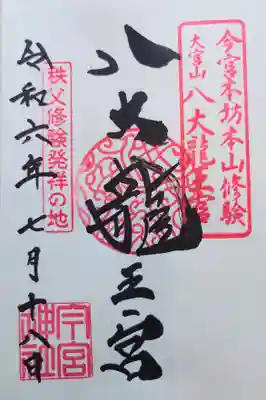 今宮本坊本山修験
大宮山 八大龍王宮
八大龍王宮
秩父修験発祥の地
令和六年七月十八日
今宮神社